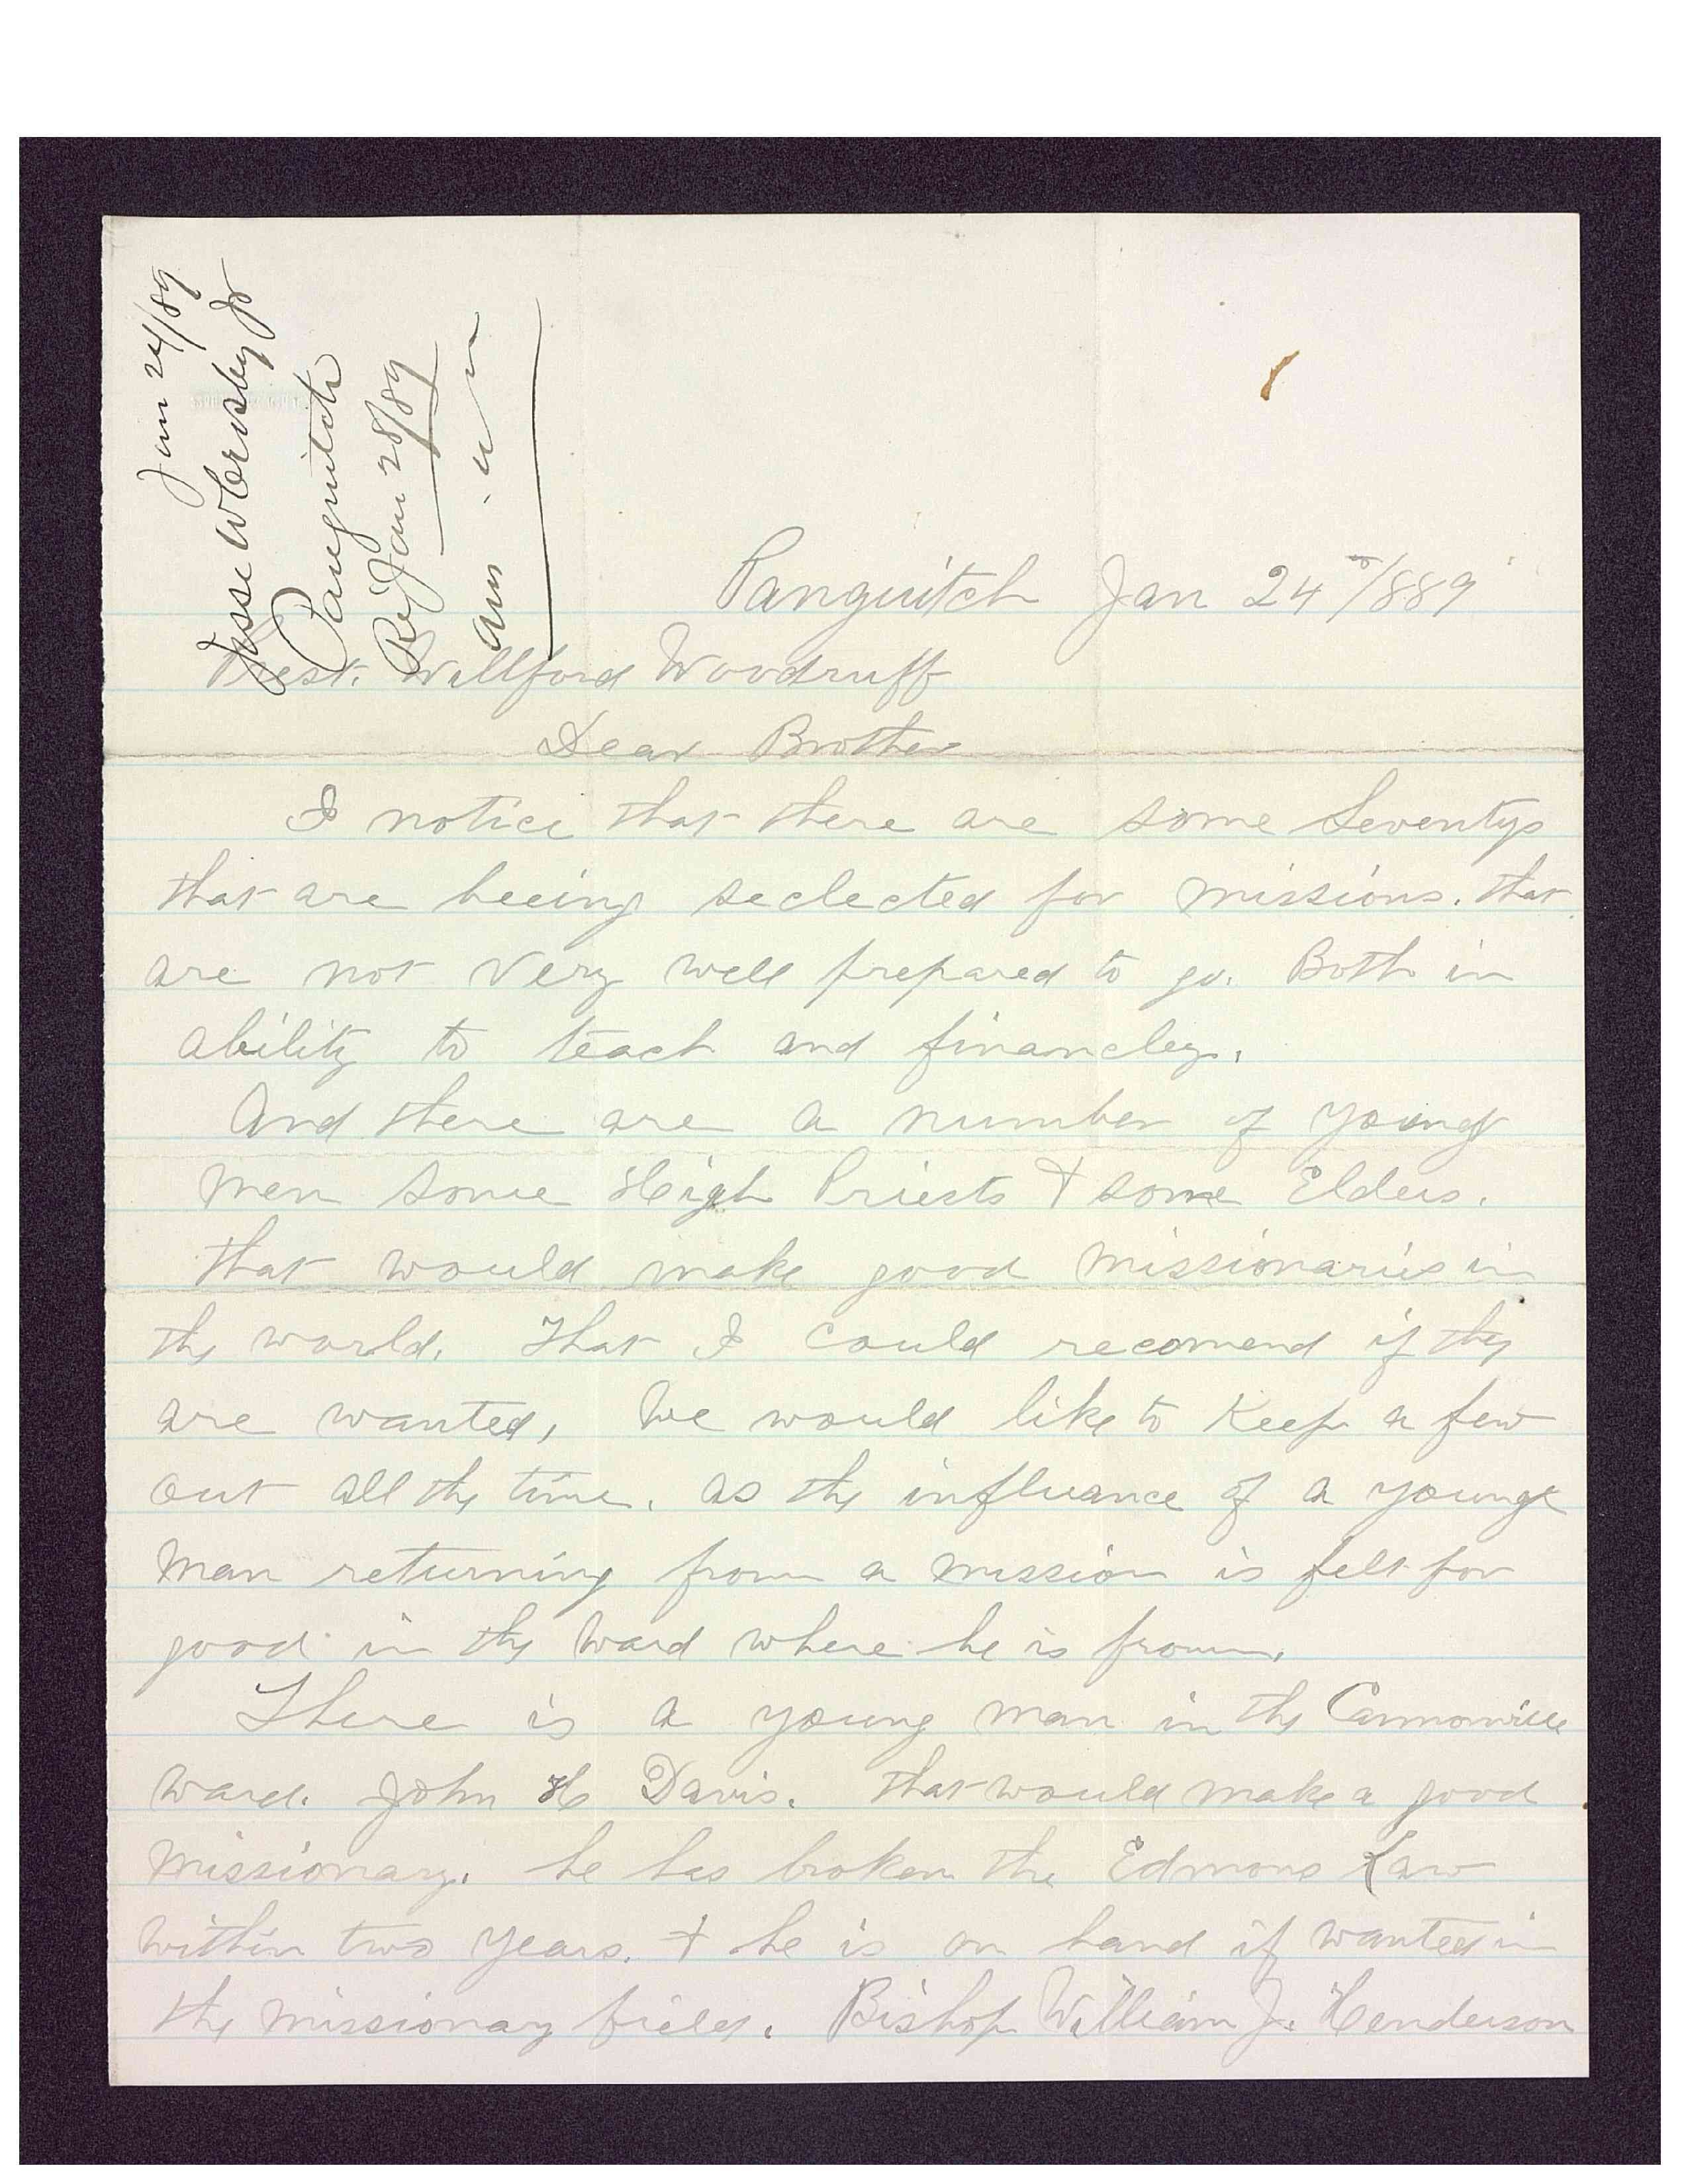 Jan 24/89
Jesse W Crosby Jr
Panguitch
Re. Jan 28/89
Panguitch Jan 24th /889
Prest. Willford Woodruff
Dear Brother
I notice that there are some Seventys
that are beeing seclected for missions. that
are not very well prepared to go. Both in
ability to teach and financley.
And there are a number of young
men some High Priests & some Elders.
that would make good missionaries in
the world. That I could recomend if they
are wanted, We would like to Keep a few
out all the time. as the influance of a young
man returning from a mission is felt for
good in the ward where he is from.
There is a young man in the Cannonville
ward. John H Davis. that would make a good
missionary. he has broken the Edmons Law
within two years. & he is on hand if wanted in
the missionary field. Bishop William J. Henderson